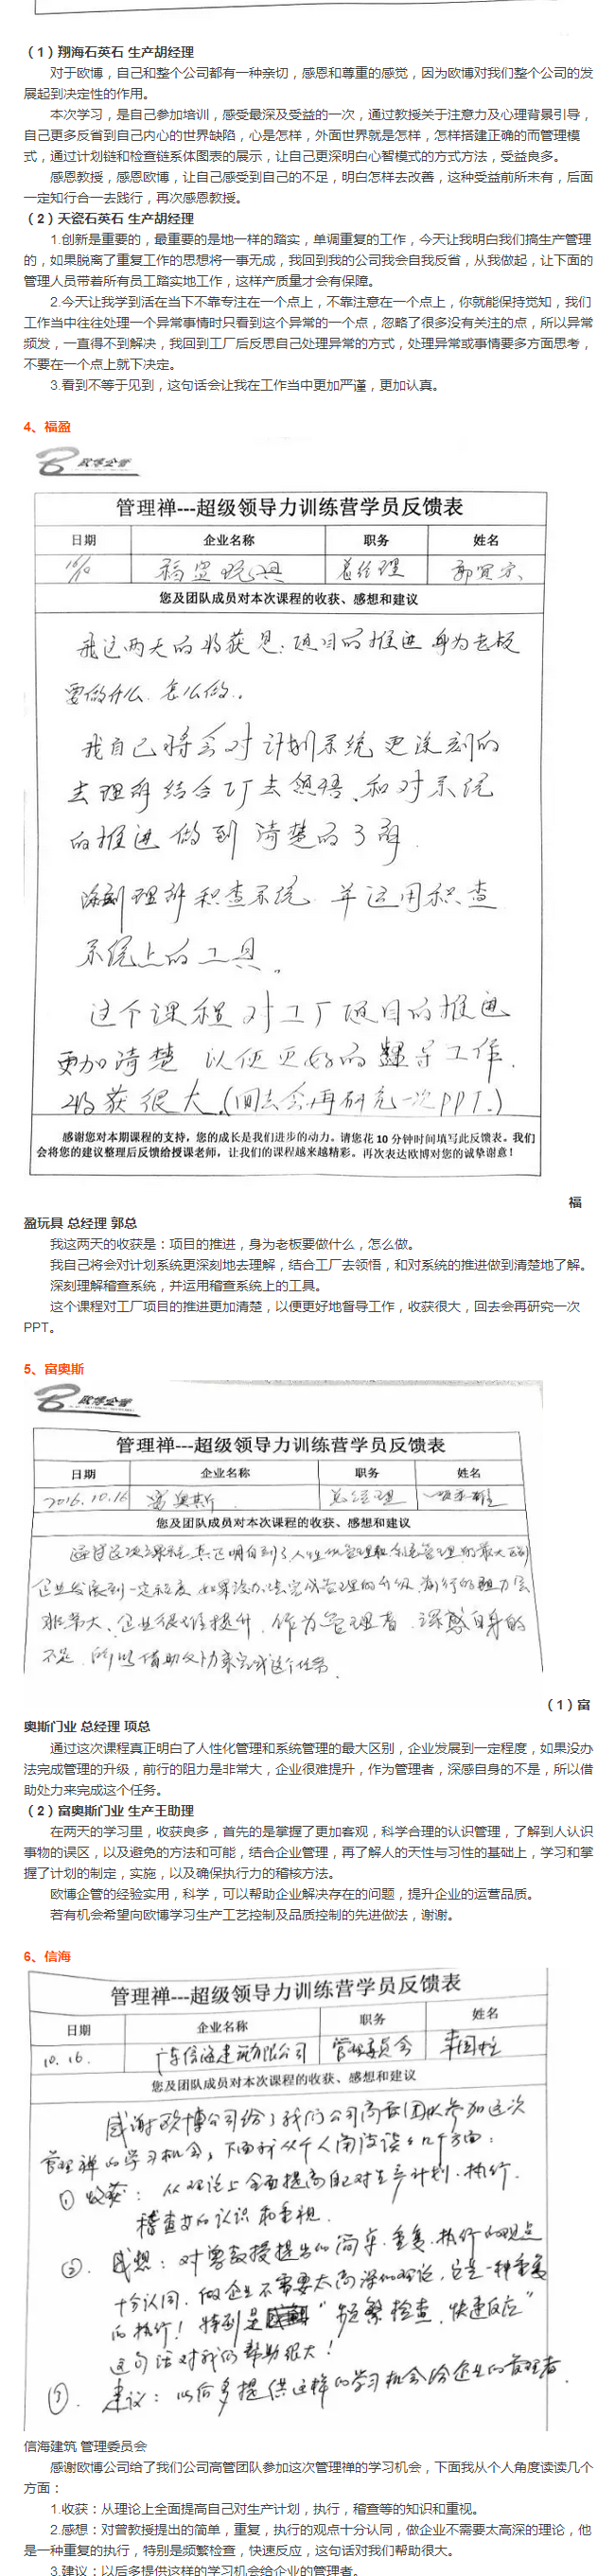 （1）翔海石英石 生产胡经理
对于欧博，自己和整个公司都有一种亲切，感恩和尊重的感觉，因为欧博对我们整个公司的发
展起到决定性的作用。
本次学习，是自己参加培训，感受最深及受益的一次，通过教授关于注意力及心理背景引导，
自己更多反省到自己内心的世界缺陷，心是怎样，外面世界就是怎样，怎样搭建正确的而管理模
式，通过计划链和检查链系体图表的展示，让自己更深明白心智模式的方式方法，受益良多。
感恩教授，感恩欧博，让自己感受到自己的不足，明白怎样去改善，这种受益前所未有，后面
一定知行合一去践行，再次感恩教授。
（2）天瓷石英石 生产胡经理
1.创新是重要的，最重要的是地一样的踏实，单调重复的工作，今天让我明白我们搞生产管理
的，如果脱离了重复工作的思想将一事无成，我回到我的公司我会自我反省，从我做起，让下面的
管理人员带着所有员工踏实地工作，这样产质量才会有保障。
2.今天让我学到活在当下不靠专注在一个点上，不靠注意在一个点上，你就能保持觉知，我们
工作当中往往处理一个异常事情时只看到这个异常的一个点，忽略了很多没有关注的点，所以异常
频发，一直得不到解决，我回到工厂后反思自己处理异常的方式，处理异常或事情要多方面思考，
不要在一个点上就下决定。
3.看到不等于见到，这句话会让我在工作当中更加严谨，更加认真。
4、福盈
欧博企管
管理禅---超级领导力训练营学员反馈表
日期 企业名称 职务 姓名
16/10 福盈玩具 总经理
您及团队成员对本次课程的收获、感想和建议
我这两天的收获是：项目的推进 身为老板
要做什么 怎么做。
我自己将会对计划系统更深刻的
去理解 结合工厂去领悟、和对系统
的推进做到清楚的了解.
深刻理解积查系统 并运用积查
系统上的工具。
这个课程对工厂项目的推进
更加清楚 以便更好的督导工作.
收获很大.(回去会再研究一次PPT.)
感谢您对本期课程的支持，您的成长是我们进步的动力。请您花 10 分钟时间填写此反馈表。我们
会将您的建议整理后反馈给授课老师，让我们的课程越来越精彩。再次表达欧博对您的诚挚谢意！
福
盈玩具 总经理 郭总
我这两天的收获是：项目的推进，身为老板要做什么，怎么做。
我自己将会对计划系统更深刻地去理解，结合工厂去领悟，和对系统的推进做到清楚地了解。
深刻理解稽查系统，并运用稽查系统上的工具。
这个课程对工厂项目的推进更加清楚，以便更好地督导工作，收获很大，回去会再研究一次
PPT。
5、富奥斯
欧博企管
管理禅---超级领导力训练营学员反馈表
日期 企业名称 职务 姓名
2016.10.16 富奥斯 总经理
您及团队成员对本次课程的收获、感想和建议
通过这次课程真正明白到了人性化管理和系统管理的最大区别
企业发展到一定程度 如果没办法完成管理的升级 前行的阻力会
非常大、企业很难提升. 作为管理者 深感自身的
不足 所以借助外力来完成这个任务.
（1）富
奥斯门业 总经理 项总
通过这次课程真正明白了人性化管理和系统管理的最大区别，企业发展到一定程度，如果没办
法完成管理的升级，前行的阻力是非常大，企业很难提升，作为管理者，深感自身的不是，所以借
助处力来完成这个任务。
（2）富奥斯门业 生产王助理
在两天的学习里，收获良多，首先的是掌握了更加客观，科学合理的认识管理，了解到人认识
事物的误区，以及避免的方法和可能，结合企业管理，再了解人的天性与习性的基础上，学习和掌
握了计划的制定，实施，以及确保执行力的稽核方法。
欧博企管的经验实用，科学，可以帮助企业解决存在的问题，提升企业的运营品质。
若有机会希望向欧博学习生产工艺控制及品质控制的先进做法，谢谢。
6、信海
管理禅---超级领导力训练营学员反馈表
日期 企业名称 职务 姓名
10.16. 广东信海建筑有限公司 管理委员会
您及团队成员对本次课程的收获、感想和建议
感谢欧博公司给了我们公司高管团队参加这次
管理禅的学习机会，下面我从个人角度谈谈几个方面：
① 收获：从理论上全面提高自己对生产计划.执行.
稽查等的认识和重视.
②. 感想：对曾教授提出的简单.重复.执行的观点
十分认同. 做企业不需要太高深的理论，它是一种重复
的执行！特别是 “频繁检查，快速反应”
这句话对我们帮助很大！
③. 建议：以后多提供这样的学习机会给企业的管理者.
信海建筑 管理委员会
感谢欧博公司给了我们公司高管团队参加这次管理禅的学习机会，下面我从个人角度读读几个
方面：
1.收获：从理论上全面提高自己对生产计划，执行，稽查等的知识和重视。
2.感想：对曾教授提出的简单，重复，执行的观点十分认同，做企业不需要太高深的理论，他
是一种重复的执行，特别是频繁检查，快速反应，这句话对我们帮助很大。
3.建议：以后多提供这样的学习机会给企业的管理者。